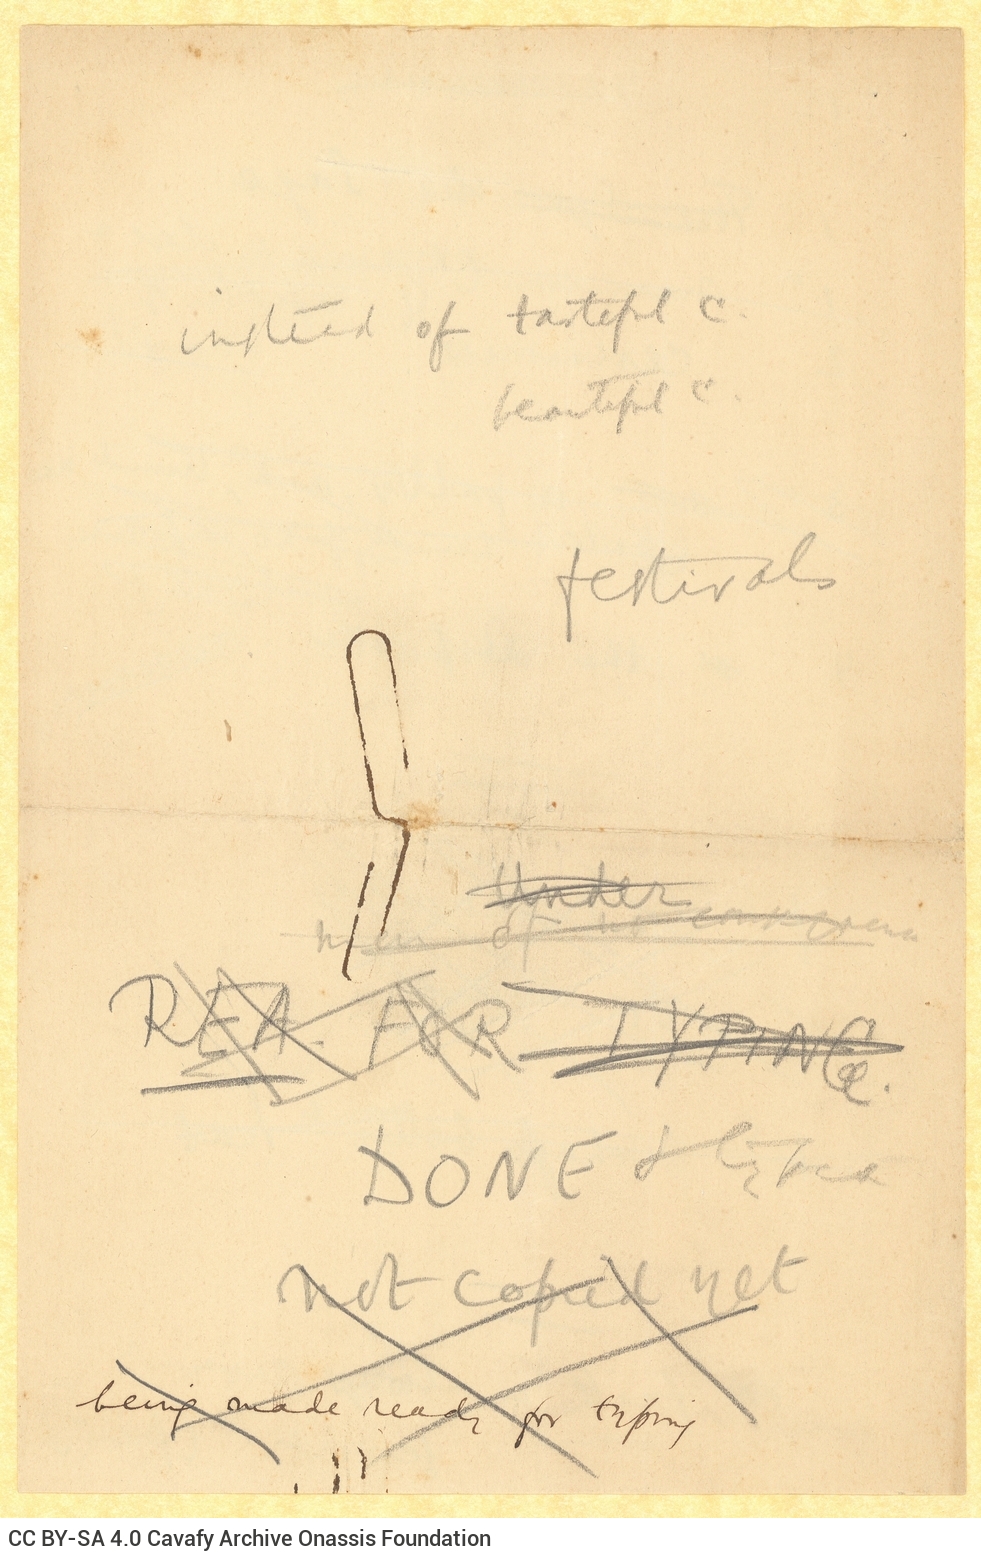 instead of tasteful c.
beautiful c.
festivals
Under
men of no
REA. FOR TYPING.
DONE & typed
not copied yet
being made ready for typing
CC BY-SA 4.0 Cavafy Archive Onassis Foundation